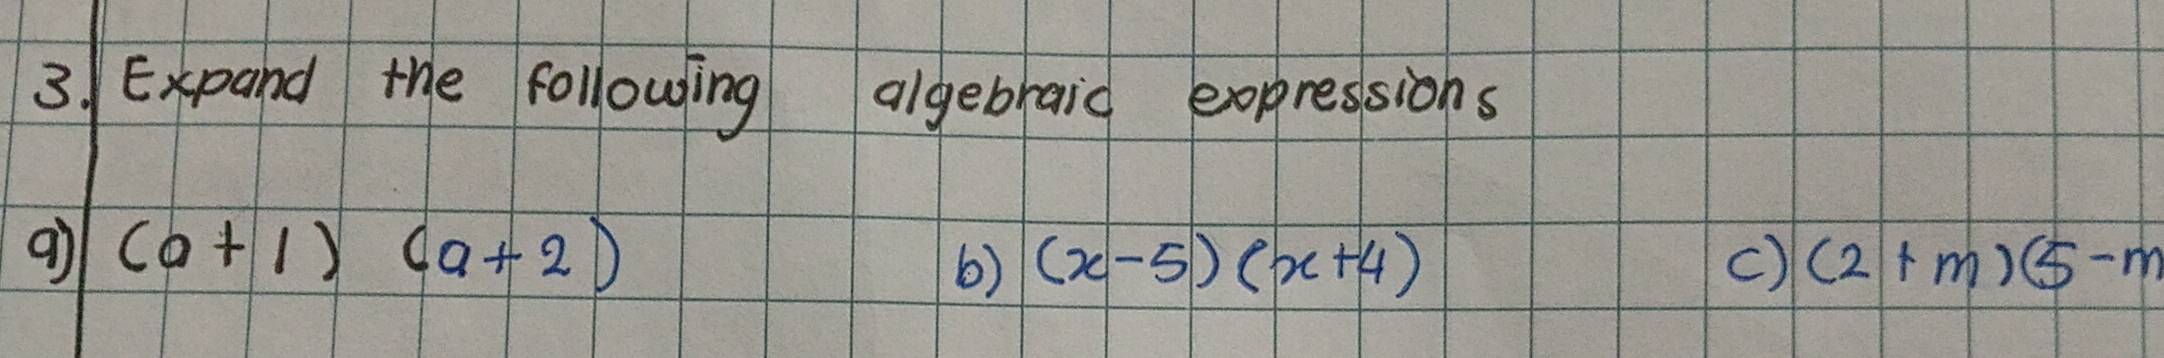 3. Expand the following algebraic expressions
a) (a+1) (a+2) b) (x-5) (x+4) c) (2+m)(5-m